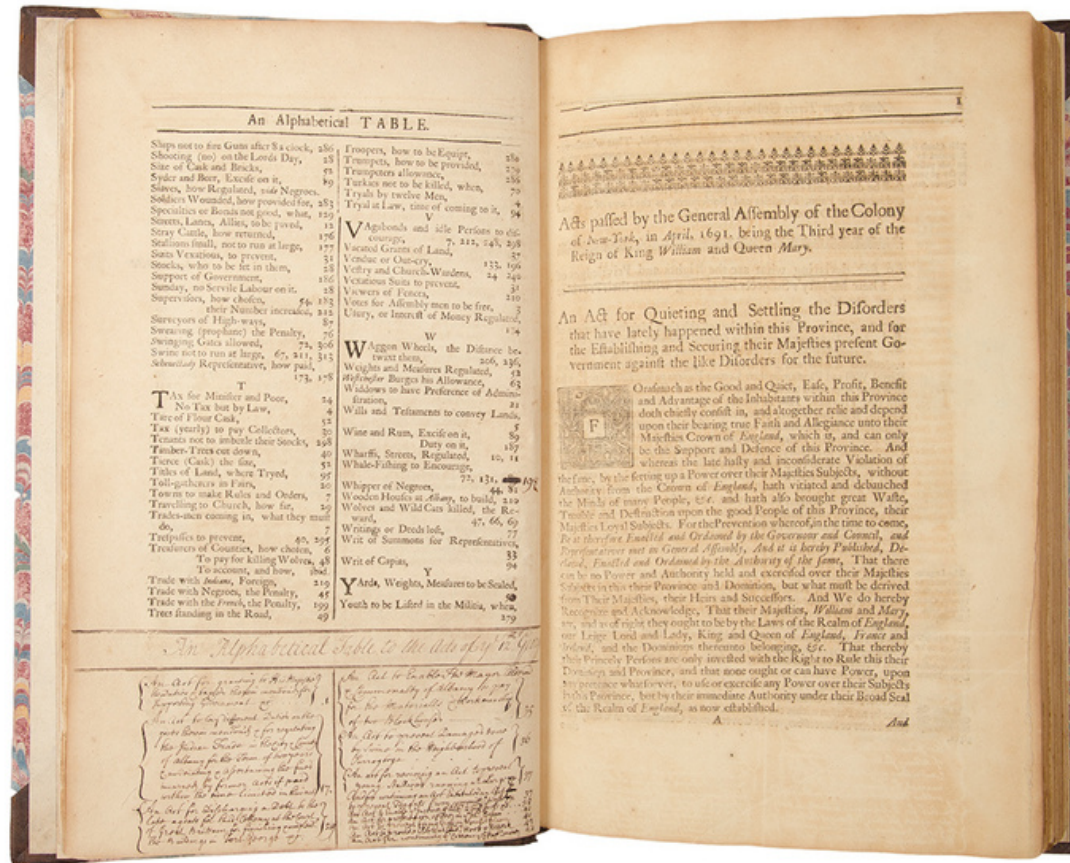 An Alphabetical TABLE.
Ships not to fire Guns after 8 a clock, 286
Shooting (no) on the Lords Day, 28
Size of Cask and Bricks, 52
Syder and Beer, Excise on it, 89
Slaves, how Regulated, vide Negroes.
Soldiers Wounded, how provided for, 283
Specialties or Bonds not good, what, 129
Streets, Lanes, Allies, to be paved, 12
Stray Cattle, how returned, 176
Stallions small, not to run at large, 177
Suits Vexatious, to prevent, 31
Stocks, who to be set in them, 28
Support of Government, 186
Sunday, no Servile Labour on it, 28
Supervisors, how chosen, 54, 183
their Number increased, 212
Surveyors of High-ways, 87
Swearing (prophane) the Penalty, 76
Swinging Gates allowed, 72, 306
Swine not to run at large, 67, 211, 313
Schenectady Representative, how paid,
173, 178
T
TAx for Minister and Poor, 24
No Tax but by Law, 4
Tare of Flour Cask, 52
Tax (yearly) to pay Collectors, 30
Tenants not to imbezle their Stocks, 298
Timber-Trees cut down, 40
Tierce (Cask) the size, 52
Titles of Land, where Tryed, 95
Toll-gatherers in Fairs, 20
Towns to make Rules and Orders, 7
Travelling to Church, how far, 29
Trades-men coming in, what they must
do, 7
Trespasses to prevent, 40, 295
Treasurers of Counties, how chosen, 6
To pay for killing Wolves, 48
To account, and how, ibid.
Trade with Indians, Foreign, 219
Trade with Negroes, the Penalty, 45
Trade with the French, the Penalty, 199
Trees standing in the Road, 49
Troopers, how to be Equipt, 280
Trumpets, how to be provided, 279
Trumpeters allowance, 286
Turkies not to be killed, when, 70
Tryals by twelve Men, 4
Tryal at Law, time of coming to it, 94
V
VAgabonds and idle Persons to dis-
courage, 7, 212, 248, 298
Vacated Grants of Land, 37
Vendue or Out-cry, 133, 196
Vestry and Church-Wardens, 24 240
Vexatious Suits to prevent, 31
Viewers of Fences, 210
Votes for Assembly men to be free, 3
Usury, or Interest of Money Regulated,
124
W
WAggon Wheels, the Distance be-
twixt them, 206, 236,
Weights and Measures Regulated, 52
Westchester Burges his Allowance, 63
Widdows to have Preference of Admini-
stration, 21
Wills and Testaments to convey Lands,
5
Wine and Rum, Excise on it, 89
Duty on it, 187
Wharffs, Streets, Regulated, 10, 11
Whale-Fishing to Encourage,
72, 131, 192
Whipper of Negroes, 44, 81
Wooden Houses at Albany, to build, 202
Wolves and Wild Cats killed, the Re-
ward, 47, 66, 69
Writings or Deeds lost, 77
Writ of Summons for Representatives,
33
Writ of Capias, 94
Y
YArds, Weights, Measures to be Sealed,
50
Youth to be Listed in the Militia, when,
279
An Alphabetical Table to the Acts of
An Act for granting to His Majesty
An Act to lay different Duties
the Indian Trade in the City & County
of Albany for the Term of
within the time limited in
An Act for Discharging a Debt
An Act to Enable the Mayor
& Commonalty of Albany to pay
for the Materialls & Workmanship
of two Blockhouses 35
An Act to prevent Damages done
by Swine in the Neighbourhood of
36
An Act for reviving an Act to prevent
young Stallions running 37
1
Acts passed by the General Assembly of the Colony
of New-York, in April, 1691. being the Third year of the
Reign of King William and Queen Mary.
An Act for Quieting and Settling the Disorders
that have lately happened within this Province, and for
the Establishing and Securing their Majesties present Go-
vernment against the like Disorders for the future.
FOrasmuch as the Good and Quiet, Ease, Profit, Benefit
and Advantage of the Inhabitants within this Province
doth chiefly consist in, and altogether relie and depend
upon their bearing true Faith and Allegiance unto their
Majesties Crown of England, which is, and can only
be the Support and Defence of this Province. And
whereas the late hasty and inconsiderate Violation of
the same, by the setting up a Power over their Majesties Subjects, without
Authority from the Crown of England, hath vitiated and debauched
the Minds of many People, &c. and hath also brought great Waste,
Trouble and Destruction upon the good People of this Province, their
Majesties Loyal Subjects. For the Prevention whereof, in the time to come,
Be it therefore Enacted and Ordained by the Governour and Council, and
Representatives met in General Assembly, And it is hereby Published, De-
clared, Enacted and Ordained by the Authority of the same, That there
can be no Power and Authority held and exercised over their Majesties
Subjects in this their Province and Dominion, but what must be derived
from Their Majesties, their Heirs and Successors. And We do hereby
Recognize and Acknowledge, That their Majesties, William and Mary,
are, and as of right they ought to be by the Laws of the Realm of England,
our Leige Lord and Lady, King and Queen of England, France and
Ireland, and the Dominions thereunto belonging, &c. That thereby
their Princely Persons are only invested with the Right to Rule this their
Dominion and Province, and that none ought or can have Power, upon
any pretence whatsoever, to use or exercise any Power over their Subjects
in this Province, but by their immediate Authority under their Broad Seal
of the Realm of England, as now established.
A
And